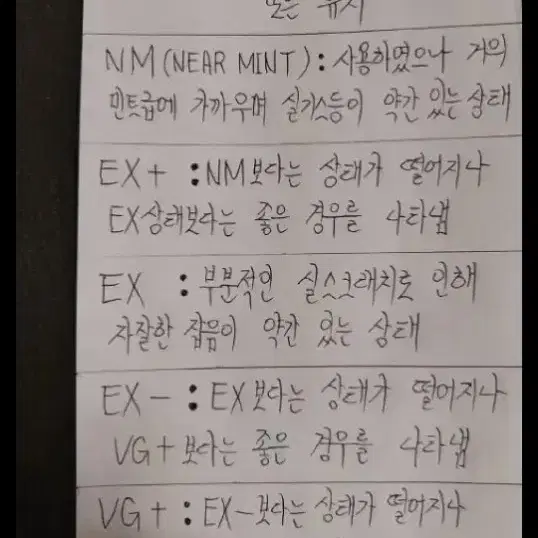 또는 유지
NM(NEAR MINT) : 사용하였으나 거의
민트급에 가까우며 실기스등이 약간 있는 상태
EX+ : NM보다는 상태가 떨어지나
EX상태보다는 좋은 경우를 나타냄
EX : 부분적인 실스크래치로 인해
자잘한 잡음이 약간 있는 상태
EX- : EX보다는 상태가 떨어지나
VG+보다는 좋은 경우를 나타냄
VG+ : EX-보다는 상태가 떨어지나